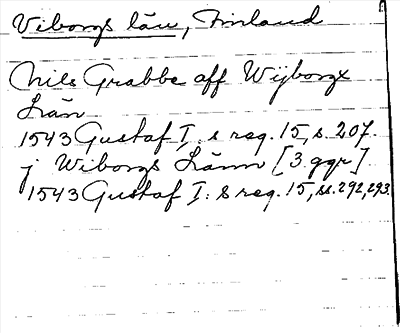 Viborgs län, Finland
Nils Grabbe aff Wijborgx
Län
1543 Gustaf I:s reg. 15, s. 207.
j Wiborgs Länn [3 ggr]
1543 Gustaf I:s reg. 15, ss. 292, 293.